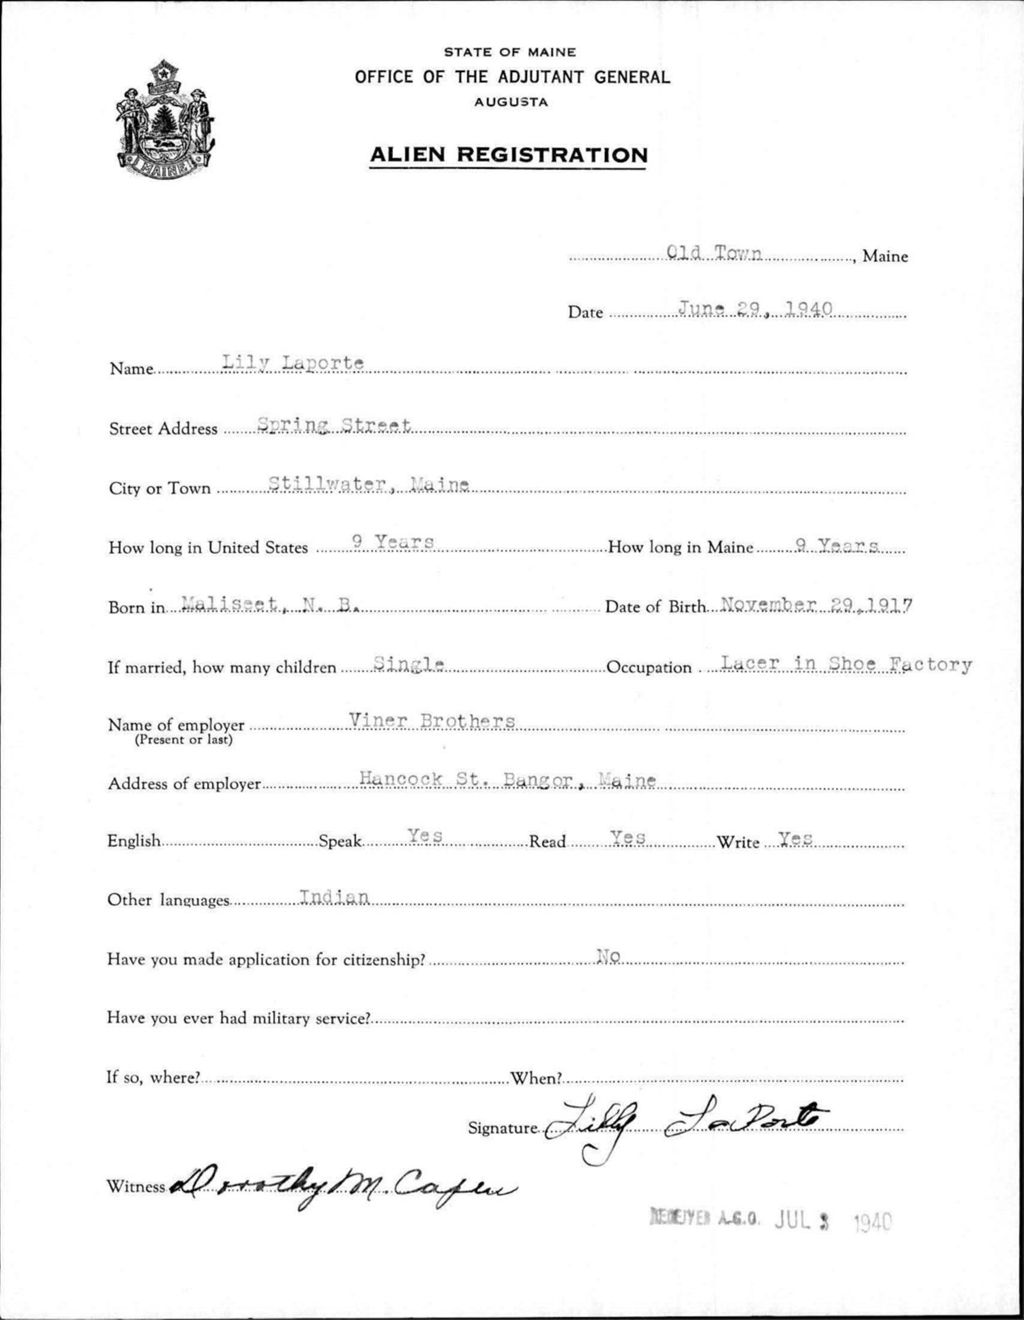 STATE OF MAINE
OFFICE OF THE ADJUTANT GENERAL
AUGUSTA
ALIEN REGISTRATION
MAINE
Old Town, Maine
Date June 29, 1940
Name Lily Laporte
Street Address Spring Street
City or Town Stillwater, Maine
How long in United States 9 Years How long in Maine 9 Years
Born in Maliseet, N. B. Date of Birth November 29, 1917
If married, how many children Single Occupation Lacer in Shoe Factory
Name of employer Viner Brothers
(Present or last)
Address of employer Hancock St. Bangor, Maine
English Speak Yes Read Yes Write Yes
Other languages Indian
Have you made application for citizenship? No
Have you ever had military service?
If so, where? When?
Signature Lilly LaPorte
Witness Dorothy M. Capen
RECEIVED A.G.O. JUL 3 1940